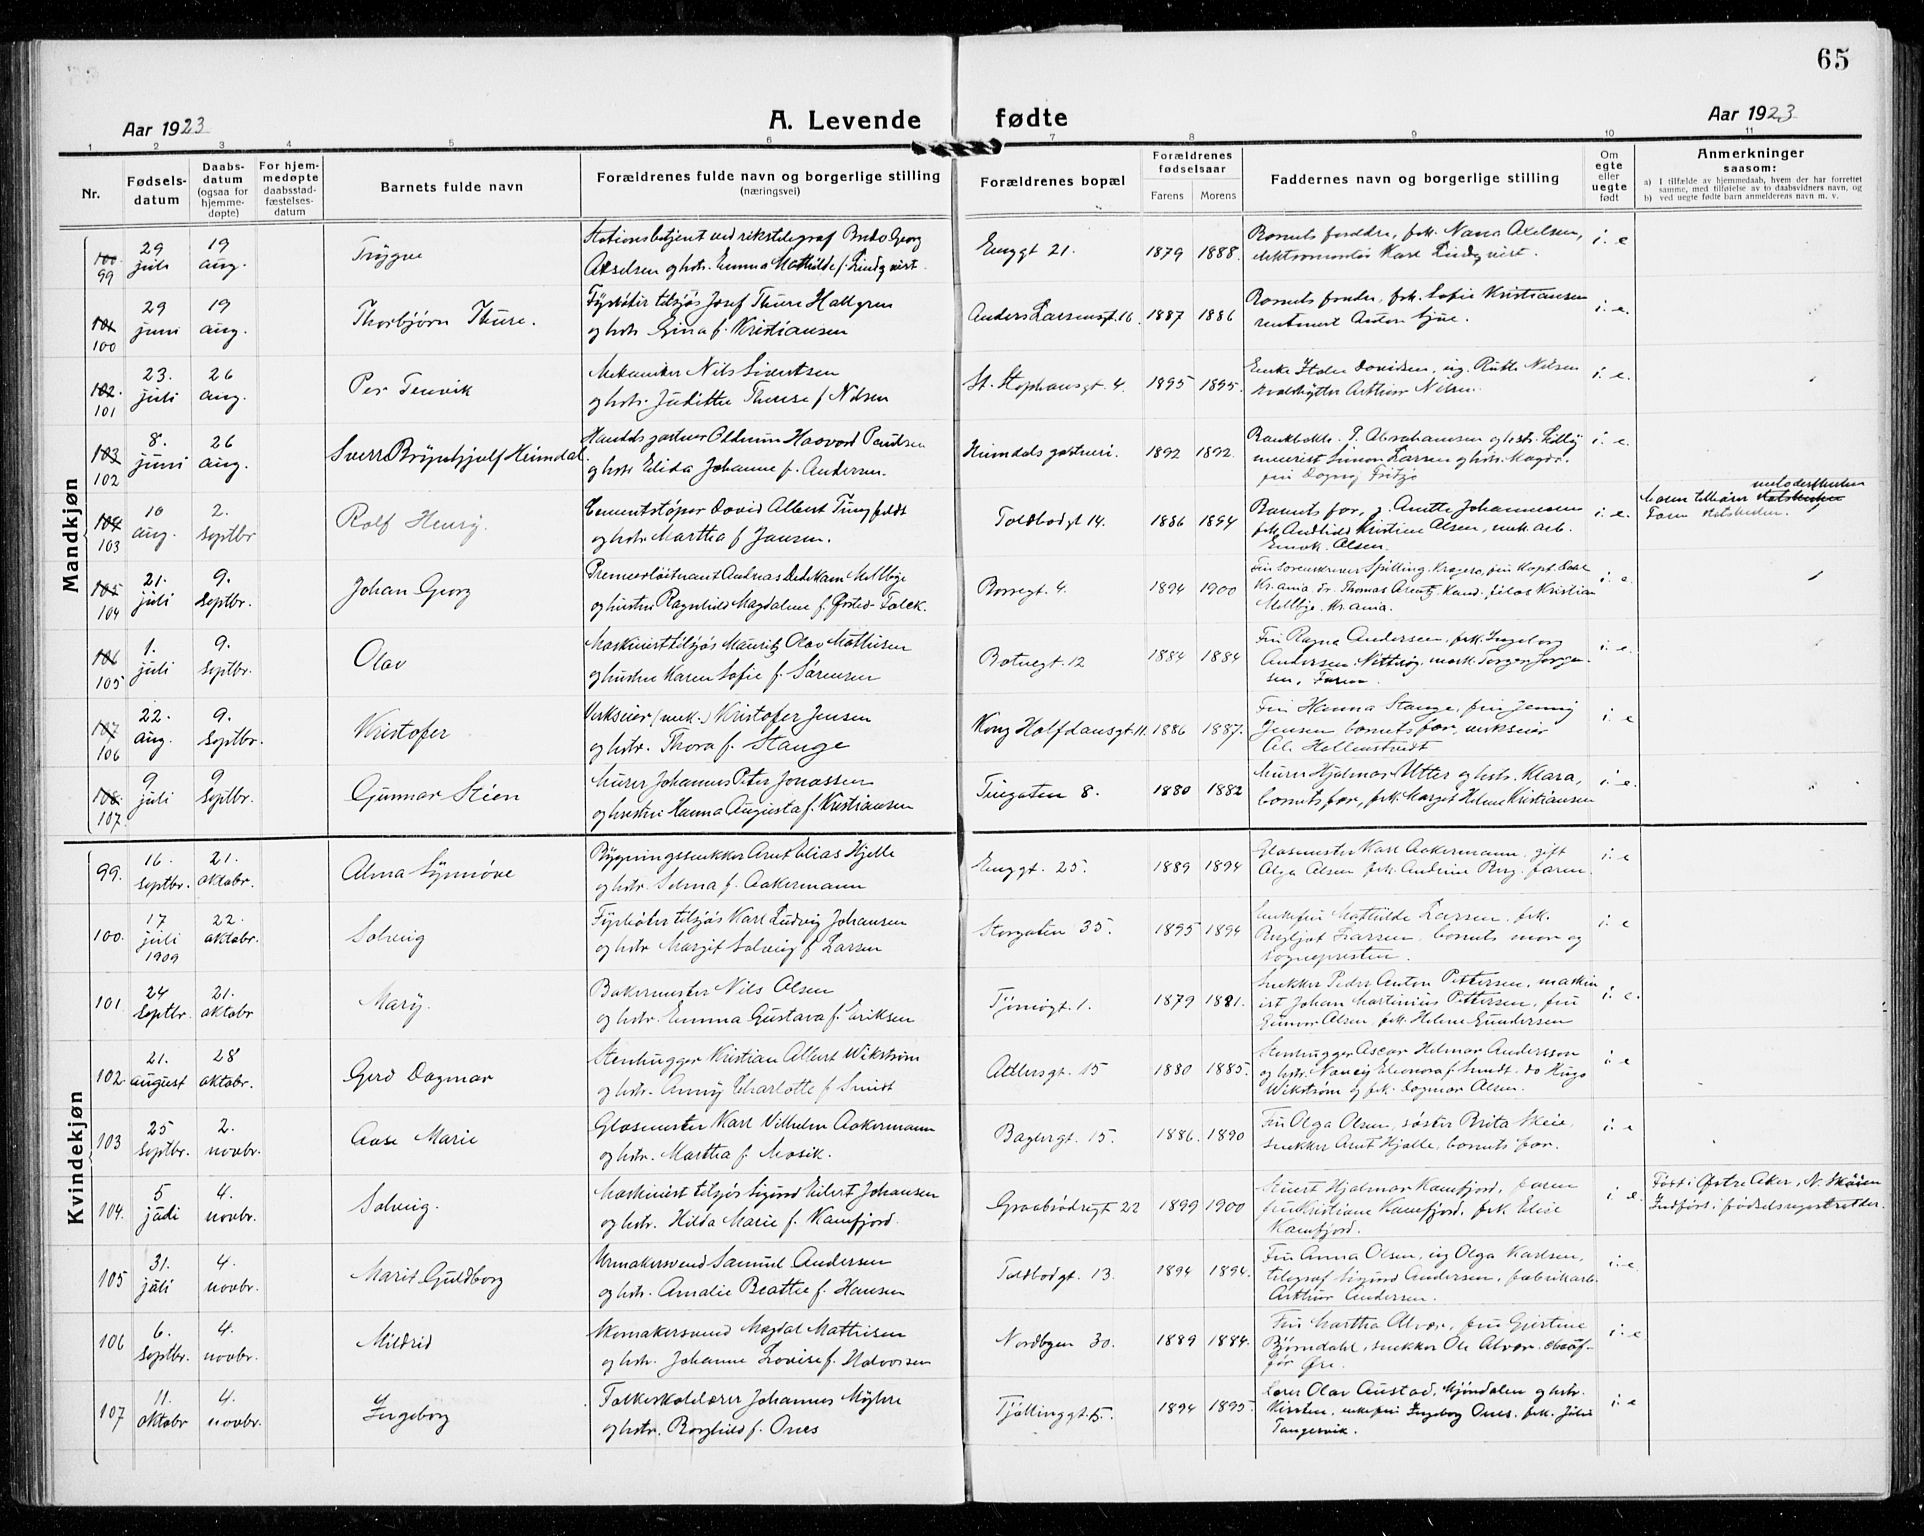 65
Aar 1923
A. Levende fødte
Aar 1923
1 2 3 4 5 6 7 8 9 10 11
Nr.
Fødsels-
datum
Daabs-
datum
(ogsaa for
hjemme-
døpte)
For hjem-
medøpte
daabsstad-
fæstelses-
datum
Barnets fulde navn
Forældrenes fulde navn og borgerlige stilling
(næringsvei)
Forældrenes bopæl
Forældrenes
fødselsaar
Farens Morens
Faddernes navn og borgerlige stilling
Om
egte
eller
uegte
født
Anmerkninger
saasom:
a) I tilfælde av hjemmedaab, hvem der har forrettet
samme, med tilføielse av to daabsvidners navn, og
b) ved uegte fødte barn anmelderens navn m. v.
Mandkjøn
100 99 29 juli 19 aug. Trygve
Stationsbetjent ved rikstelegraf Georg
Akselsen og hstr. Emma Mathilde f. Lindqvist.
Enggt 21. 1879 1888.
Barnets forældre, frk. Nana Axelsen,
elektromontør Karl Lindqvist. i. e
101 100 29 juni 19 aug. Thorbjørn Thure.
Fyrbøter tilsjøs Josef Thure Hallgren
og hstr. Gina f. Kristiansen
Anders Larsensgt. 16. 1887 1886
frk. Sofie Kristiansen
rentenist Anton i. e.
102. 101 23. juli 26 aug. Per Tenvik
Mekaniker Nils Sivertsen
og hstr. Judithe Therese f. Nilsen
St. Stephansgt 4. 1895 1895.
Enke Davidsen, ug. Ruth Nilsen
hvalskytter Arthur Nilsen. i. e.
103 102 8. juni 26 aug. Sverre Brynhjulf Heimdal
Handelsgartner Haavard Paulsen
og hstr Elida Johanne f. Andersen.
Heimdals gartneri. 1892 1892.
Bankbokh. P. Abrahamsen og hstr.
meierist Simon Larsen og hstr. Magda.
fru Dagny i. e.
104 103 10 aug. 2. septbr Rolf Henry.
Cementstøper David Albert
og hstr Martha f Jansen.
Toldbodgt 14. 1886 1894
Barnets far, Anitte Johannesen
frk Kristine Olsen, mek. arb.
Olsen. i. e.
105 104 21. juli 9. septbr. Johan Georg
Premierløitenant Andreas Dedekam Mellbye
og hustru Ragnhild Magdalene f. Ørsted-Falck.
Borregt. 4. 1894 1900
Fru Sorenskriver Spilling. Kragerø, fru Kapt.
Kr.ania dr. Thomas Arentz, Kand. filos Kristian
Mellbye. Kr.ania. i. e.
106 105 1. juli 9. septbr. Olav
Maskinist tilsjøs Mauritz Olav Mathisen
og hustru Karen Sofie f. Sørensen
Botnegt. 12 1884 1884
Fru Ragna Andersen, frk. Ingeborg
Andersen. Nøtterøy. mask. Torger Jørgen-
sen, Faren. i. e.
107 106 22. aug. 9. septbr. Kristofer
Verkseier (mek.) Kristofer Jensen
og hstr. Thora f. Stange
Kong Halfdansgt. 11. 1886 1887.
Fru Hanna Stange, fru Jenny
Jensen barnets far, verkseier
i. e
108. 107. 9 juli 9 septbr. Gunnar Stien
Murer Johannes Peter Jonassen
og hustru Hanna Augusta f. Kristiansen
Tuegaten 8. 1880 1882
Murer Hjalmar Utter og hstr. Klara,
barnets far, frk. Margit Helene Kristiansen i. e
Kvindekjøn
99. 16. septbr. 21. oktobr. Alma Synnøve
Bygningssnekker Arnt Elias Hjelle
og hstr. Selma f. Aakermann
Enggt. 25. 1889 1894
Glasmester Karl Aakermann, gift
Olga Olsen frk. Andrine Berg. faren. i. e
100. 17 juli 1909 22. oktobr. Solveig
Fyrbøter tilsjøs Karl Ludvig Johansen
og hstr Margit Solveig f Larsen
Storgaten 35. 1895 1894
Enkefru Mathilde Larsen. frk.
Bergljot Larsen. barnets mor og
sognepresten. i. e
101 24 septbr. 21. oktobr Mary.
Bakermester Nils Olsen
og hstr. Emma Gustava f. Eriksen
Tjømøgt. 1. 1879 1881.
Snekker Peder Anton Pettersen, maskin
ist Johan Martinius Pettersen, fru
Gunvor Olsen, frk. Helene Gundersen i. e.
102. 21. august 28 oktobr. Gerd Dagmar
Stenhugger Kristian Albert Wikstrøm
og hstr. Anny Charlotte f. Smidt
Adlersgt. 15 1880 1885.
Stenhugger Oscar Helmar Andersson
og hstr. Nancy Eleonora f. Smidt. do Hugo
Wikstrøm og frk. Dagmar Olsen. i. e
103 25 septbr. 2. novbr. Aase Marie
Glasmester Karl Vilhelm Aakermann
og hstr. Martha f. Mosik.
Baglergt. 15. 1886. 1890
Fru Olga Olsen, søster Brita Skeie,
snekker Arnt Hjelle, barnets far. i. e
104. 5 juli 4. novbr. Solveig.
Maskinist tilsjøs Sigurd Eilert Johansen
og hstr. Hilda Marie f. Kamfjord.
Graabrødregt 22 1899 1900
Stuert Hjalmar Kamfjord, faren
fru Kristiane Kamfjord, frk Elise
Kamfjord. i e.
Født i Østre Aker, N. Skøien
Indført i fødselsregistret der.
105 31. juli 4. novbr. Marit Guldborg
Urmakersvend Samuel Andersen
og hstr. Amalie Beathe f. Hansen
Toldbodgt. 13. 1894 1894.
Fru Anna Olsen, ug Olga Karlsen,
telegraf Sigurd Andersen, fabrikarb.
Arthur Andersen. i. e.
106 6. septbr. 4. novbr. Mildrid
Skomakersvend Magdal Mathisen
og hstr. Johanne Lovise f. Halvorsen
Nordbyen 30. 1889 1884.
Fru Martha Alvær, fru Gjertine
Bjørndahl, snekker Ole Alvær. chauf-
før Øre. i. e
107 11. oktobr 4. novbr. Ingeborg
Folkeskolelærer Johannes Myhre
og hstr. Borghild f. Ones
Tjøllinggt. 5. 1894 1895.
Lærer Olav Austad, Mjøndalen og hstr.
Kirsten, enkefru Ingeborg Ones. frk. Julie
Tangervik. i. e